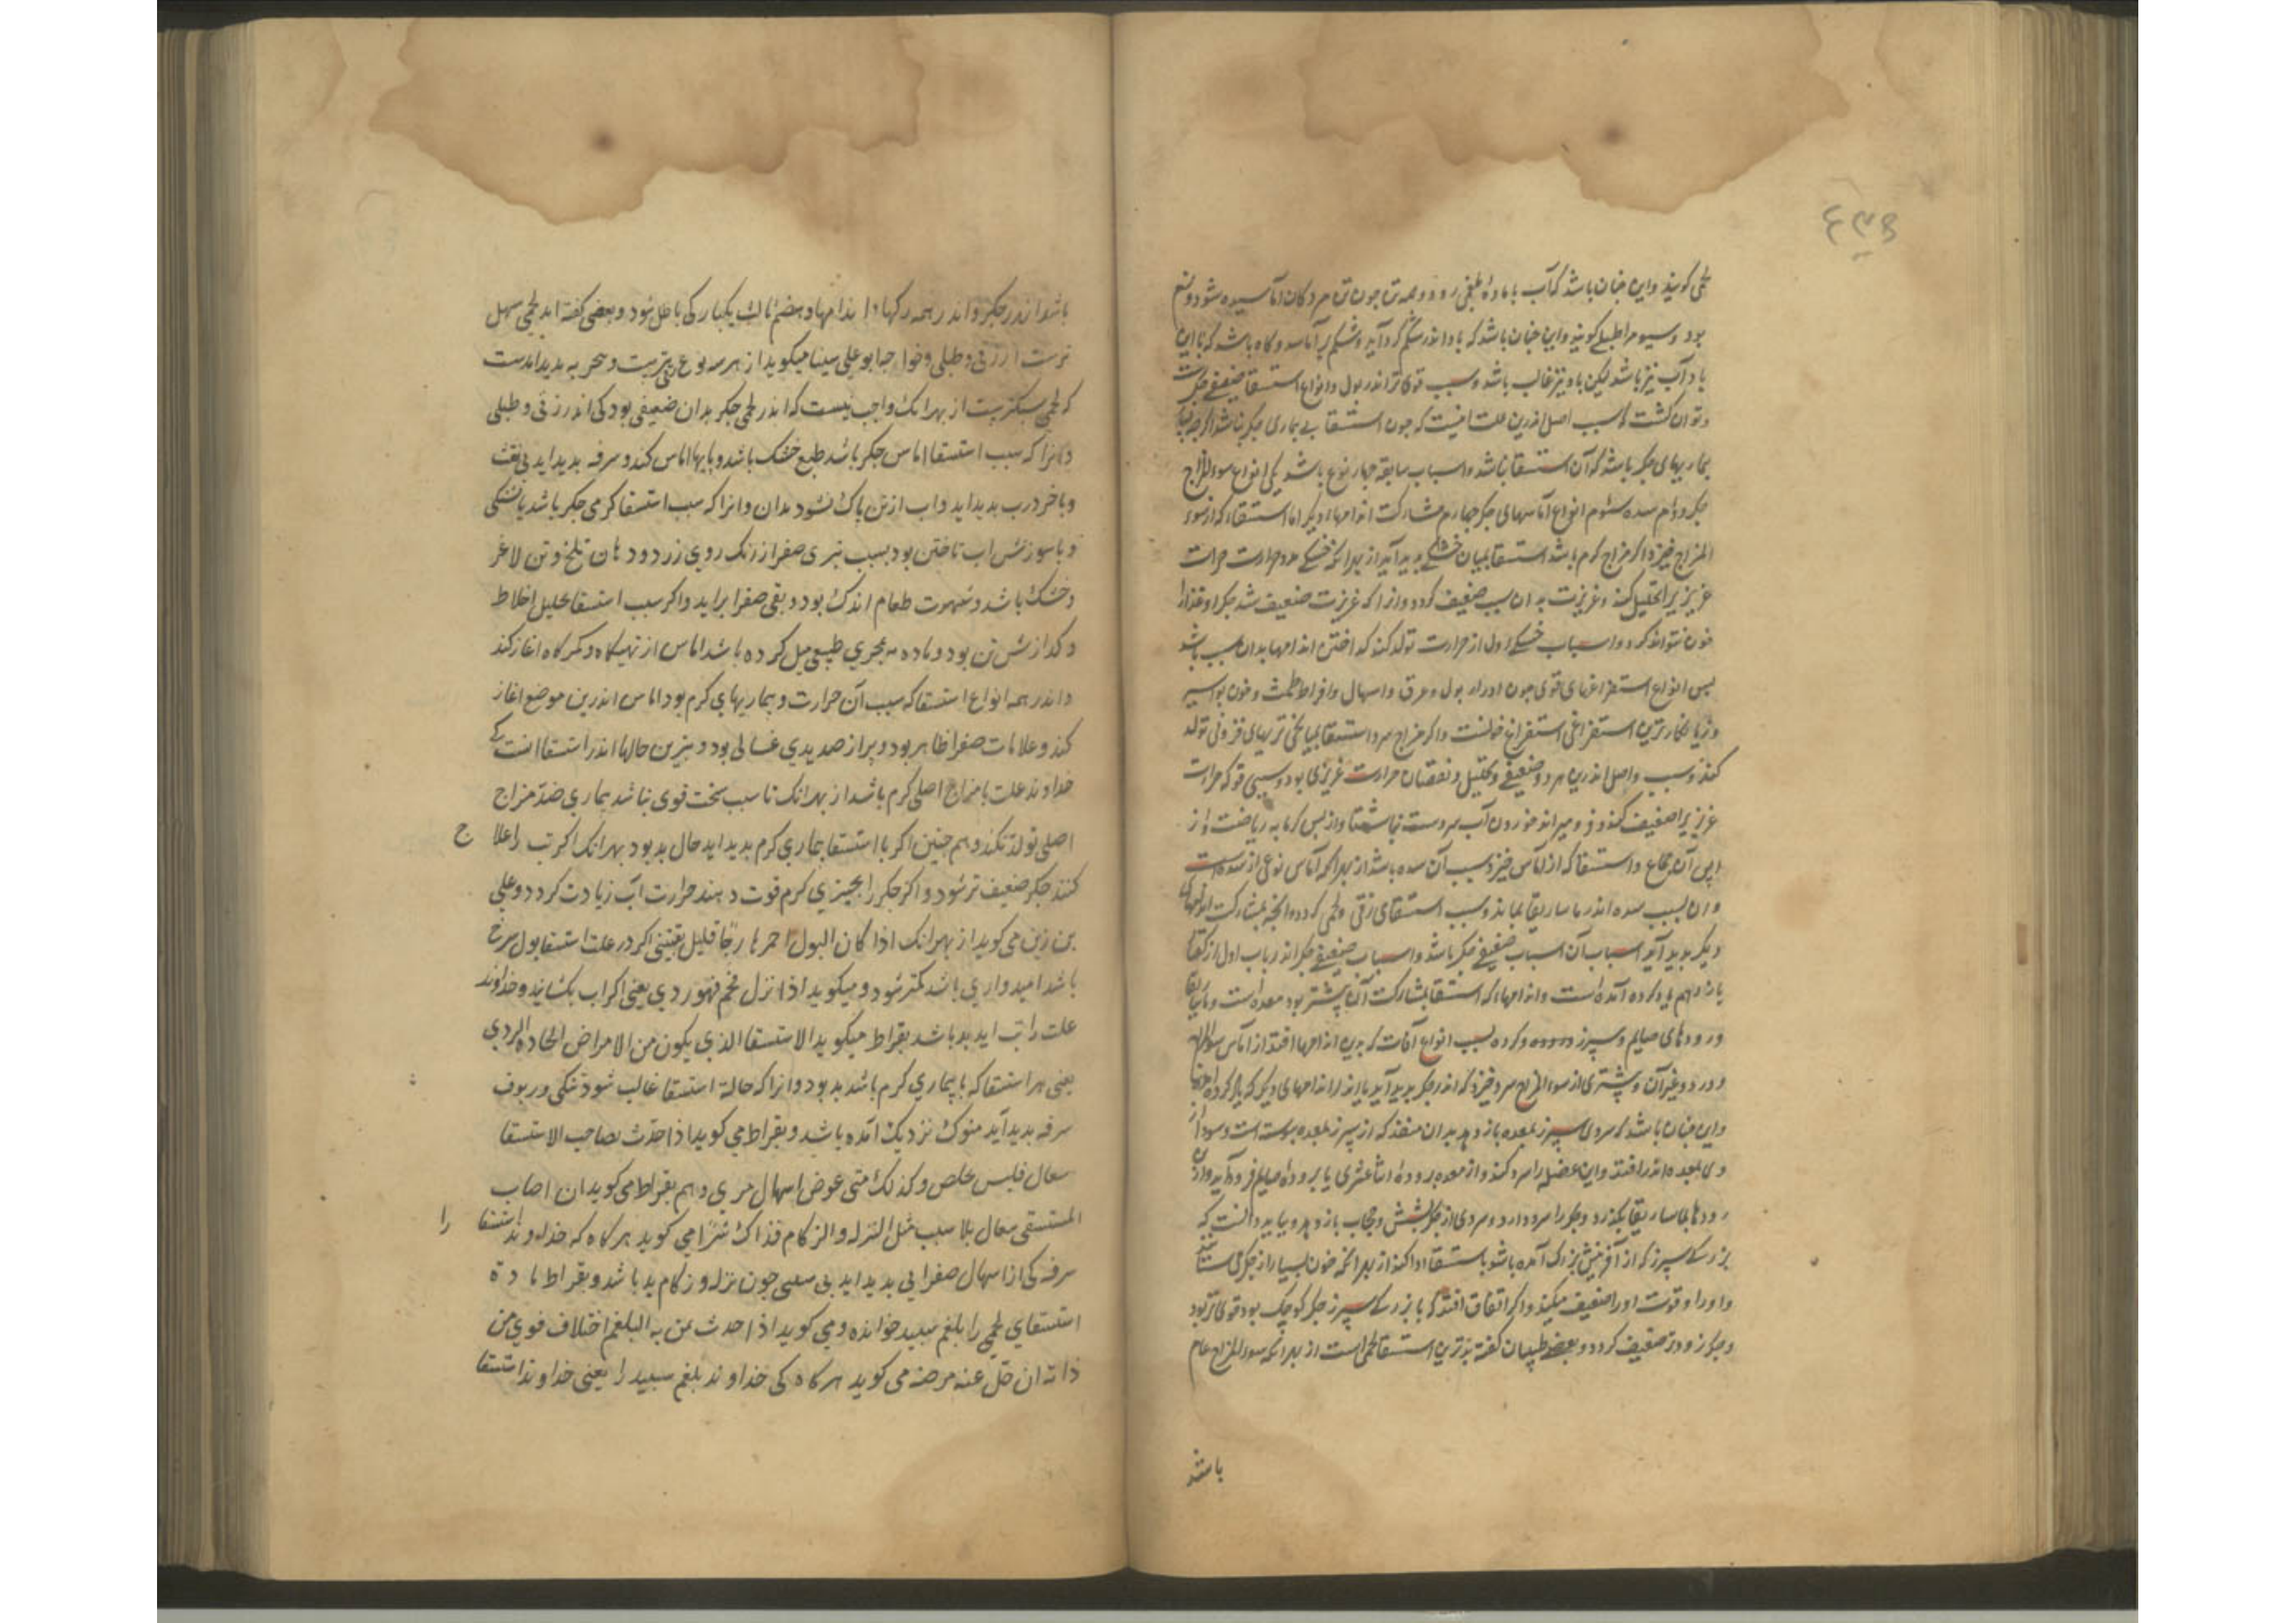 ۴۳۶
لحمی کویند واین جنان باشد کی آب با مادهٔ بلغمی رود و همه تن جون تن مردکان آماسیده شود و نوع
بود وسیوم را طبلی کویند واین جنان باشد که باد اندر شکم کرد آید و شکم برآماسد و کاه باشد که با این
باد آب نیز باشد لیکن باد نیز غالب باشد وسبب قوی تر اندر بول وانواع استسقا ضعیفی جکر است
وتوان کشت که سبب اصل اندرین علت اینست که جون استسقا بی بیماری جکر نباشد اکرجه
بیماریهای جکر باشد که آن استسقا نباشد واسباب سابقه جهار نوع باشد یکی انواع سوء المزاج
جکر دوم سده سئوم انواع آماسهای جکر جهارم مشارکت اندامهاء دیکر اما استسقاء که از سوء
المزاج خیزد اکر مزاج کرم باشد استسقا بمیان خشکی بدید آید از بهر انکه خشکی مدد حرارت حرارت
غریزی را تحلیل کند وغریزت به ان سبب ضعیف کردد وازا که غریزت ضعیف شد جکر او غذا را
خون نتواند کرد واسباب خشکی اول از حرارت تولد کند کداختن اندامها بدان سبب باشد
بس انواع استفراغهای قوی جون ادرار بول وعرق واسهال وافراط طمث وخون بواسیر
وزیان کارترین استفراغی استفراغ خونست واکر مزاج سرد استسقا بمیانجی تریهای فزونی تولد
کند وسبب واصل اندرین هر دو ضعیفی وتحلیل ونقصان حرارت غریزی بود وسببی قوی که حرارت
غریزی را ضعیف کند و فرو میراند خوردن آب سردست ناشتا واز بس کرمابه ریاضت واز
بس آن جماع واستسقا که از آماس خیزد سبب آن سده باشد از بهر انکه آماس نوعی از سده است
وان بسبب سده اندر ماساریقا بماند وسبب استسقای زقی ولحمی کردد وانجه بمشارکت اندامهای
دیکر بدید آید اسباب آن اسباب ضعیفی جکر باشد واسباب ضعیفی جکر اندر باب اول از کفتار
یازدهم یاد کرده آمده است واندامهاء که استسقا بمشارکت آن بیشتر بود معده است وماساریقا
ورودهای صایم وسپرز وکرده بسبب انواع آفات که بدین اندامها افتد از آماس سوء المزاج
ودرد وغیرآن وبیشتری از سوء المزاج سرد خیزد که اندر جکر بدید آید یا اندر اندامهای دیکر که یاد کرده
واین جنان باشد که سردی سپرز بمعده باز دهد بدان منفذ که از سپرز بمعده پیوسته است وسودا از
وی بمعده اندر افتد واین عضله را سرد کند واز معده برودهٔ اثناعشری یا برودهٔ صایم فرو آید واز
رودها بماساریقا بکذرد وجکر را سرد دارد وسردی از جکر بشش وحجاب باز دهد وبباید دانست که
بزرکی سپرز که از آفرینش بزرک آمده باشد باستسقا ادا کند از بهر انکه خون بسیار از جکر می ستاند
واو را وقوت او را ضعیف میکند واکر اتفاق افتد که با بزرکی سپرز جکر کوچک بود قوی تر بود
وجکر زودتر ضعیف کردد وبعضی طبیبان کفته بدترین استسقا لحمی است از بهر انکه سوء المزاج عام
باشد
باشد اندر جکر واندر همه رکها واندامها وهضم ثالث یکبارکی باطل شود وبعضی کفته اند لحمی سهل
ترست از زقی وطبلی وخواجه ابوعلی سینا میکوید از هر سه نوع بتریست وتجربه بدید امدست
که لحمی سبکتریست از بهر انک واجب نیست که اندر لحمی جکر بدان ضعیفی بود کی اندر زقی وطبلی
وانرا که سبب استسقا اماس جکر باشد طبع خشک باشد وبایها اماس کند وسرفه بدید اید بی نفث
وباخر درب بدید اید واب از تن باک نشود بدان وانرا که سبب استسقا کرمی جکر باشد با تشنکی
وبا سوزش اب تاختن بود بسبب تیزی صفرا از رنک روی زرد ودهان تلخ وتن لاغر
وخشک باشد وشهوت طعام اندک بود وبقی صفرا براید واکر سبب استسقا تحلیل اخلاط
وکدازش تن بود وماده بمجری طبیعی میل کرده باشد اماس از تهیکاه وکمرکاه اغاز کند
واندر همه انواع استسقا که سبب آن حرارت وبیماریهای کرم بود اماس اندرین موضع اغاز
کند وعلامات صفرا ظاهر بود وبراز صدیدی غسالی بود وبترین حالها اندر استسقا انست کی
خداوند علت با مزاج اصلی کرم باشد از بهر انک تا سبب سخت قوی نباشد بیماری ضد مزاج
اصلی تولد نکند وهم جنین اکر با استسقا بیماری کرم بدید اید حال بد بود بهر انک اکر تب را علاج
کنند جکر ضعیف تر شود واکر جکر را بجیزی کرم قوت دهند حرارت اب زیادت کردد وعلی
بن زین می کوید از بهر انک اذا کان البول احمر قلیل یعنی اکر در علت استسقا بول سرخ
باشد امیدواری باشد کمتر شود ومیکوید اذا نزل فهو ردی یعنی اکر اب بکشایند وخداوند
علت را تب اید بد باشد بقراط میکوید الاستسقا الذی یکون من الامراض الحاده الردی
یعنی هر استسقا که با بیماری کرم باشد بد بود وانرا که حالة استسقا غالب شود تنکی وربوف
سرفه بدید آید منوک نزدیک آمده باشد وبقراط می کوید اذا حدث بصاحب الاستسقا
سعال فلیس یخلص وکذلک متی عوض اسهال مری وهم بقراط می کوید ان اصاب
المستسقی سعال بلا سبب مثل النزله والزکام فذاک شرًا می کوید هر کاه که خداوند استسقا را
سرفه کی از اسهال صفرایی بدید اید بی سببی جون نزله وزکام بد باشد وبقراط مادة
استسقای لحمی را بلغم سبید خوانده ومی کوید اذا حدث بمن به البلغم اختلاف قوی من
ذاته ان حلّ عنه مرضه می کوید هر کاه کی خداوند بلغم سبید را یعنی خداوند استسقا